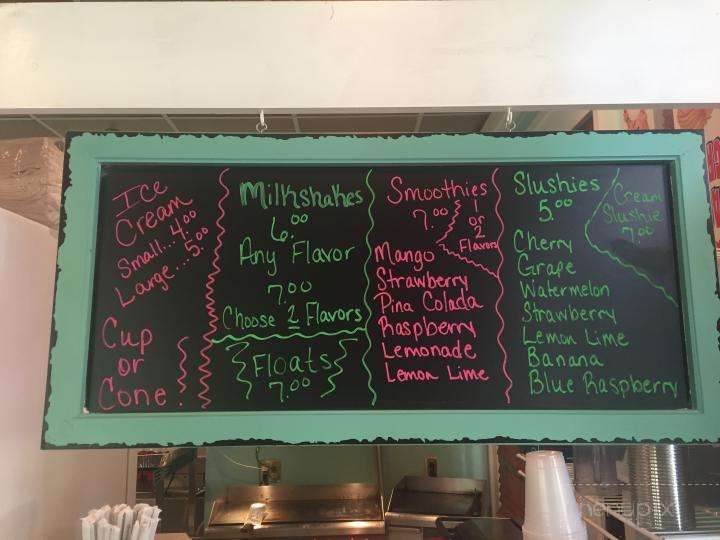 Ice
Cream
Small... 4.00
Large... 5.00
Cup
or
Cone
Milkshakes
6.00
Any Flavor
7.00
Choose 2 Flavors
Floats
7.00
Smoothies
7.00
1
or
2
Flavors
Mango
Strawberry
Pina Colada
Raspberry
Lemonade
Lemon Lime
Slushies
5.00
Cream
Slushie
7.00
Cherry
Grape
Watermelon
Strawberry
Lemon Lime
Banana
Blue Raspberry